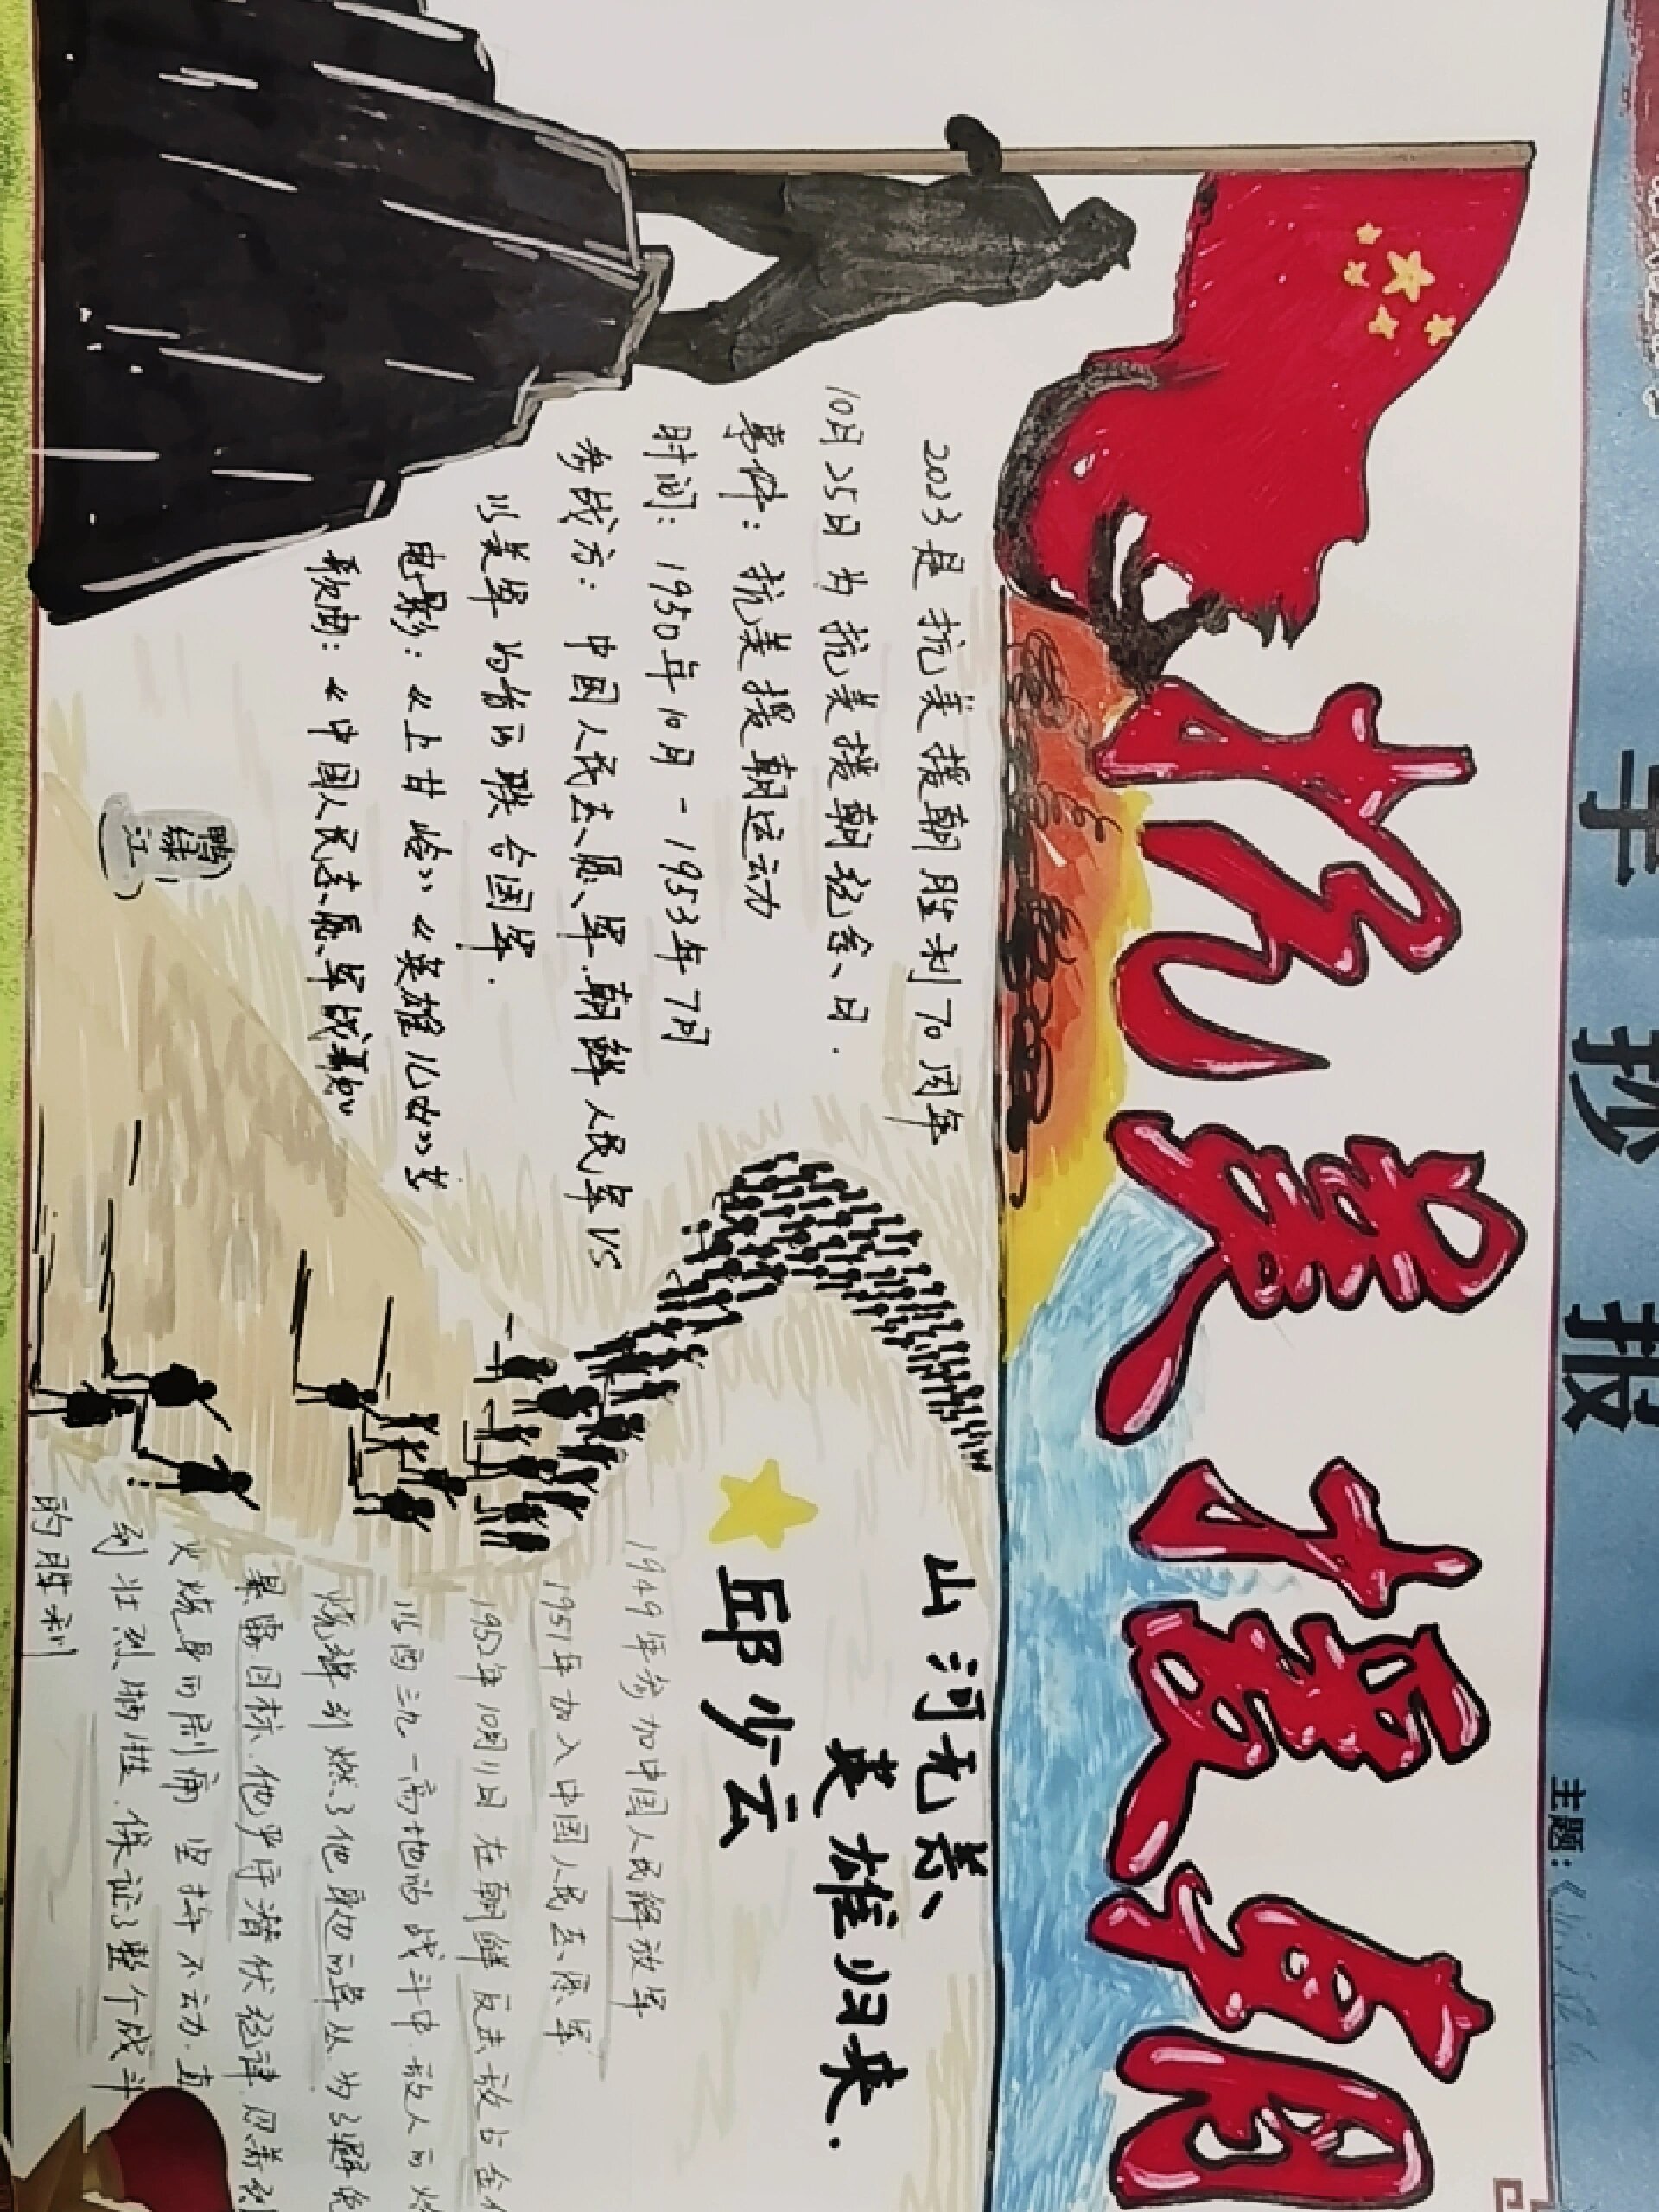 手抄报
主题:《
抗美援朝
2023是抗美援朝胜利70周年
10月25日为抗美援朝纪念日.
事件:抗美援朝运动
时间:1950年10月-1953年7月
参战方:中国人民志愿军.朝鲜人民军VS
以美军为首的联合国军.
电影:《上甘岭》《英雄儿女》等
歌曲:《中国人民志愿军战歌》
鸭绿江
山河无恙
英雄归来.
邱少云
1949年参加中国人民解放军
1951年加入中国人民志愿军
1952年10月11日在朝鲜反击敌占金化
以西三九一高地的战斗中.敌人的
烧弹引燃了他身边的草丛.为了避免
暴露目标.他严守潜伏纪律.忍着烈
火烧身的剧痛 坚持不动.直
到壮烈牺牲.保证了整个战斗
的胜利